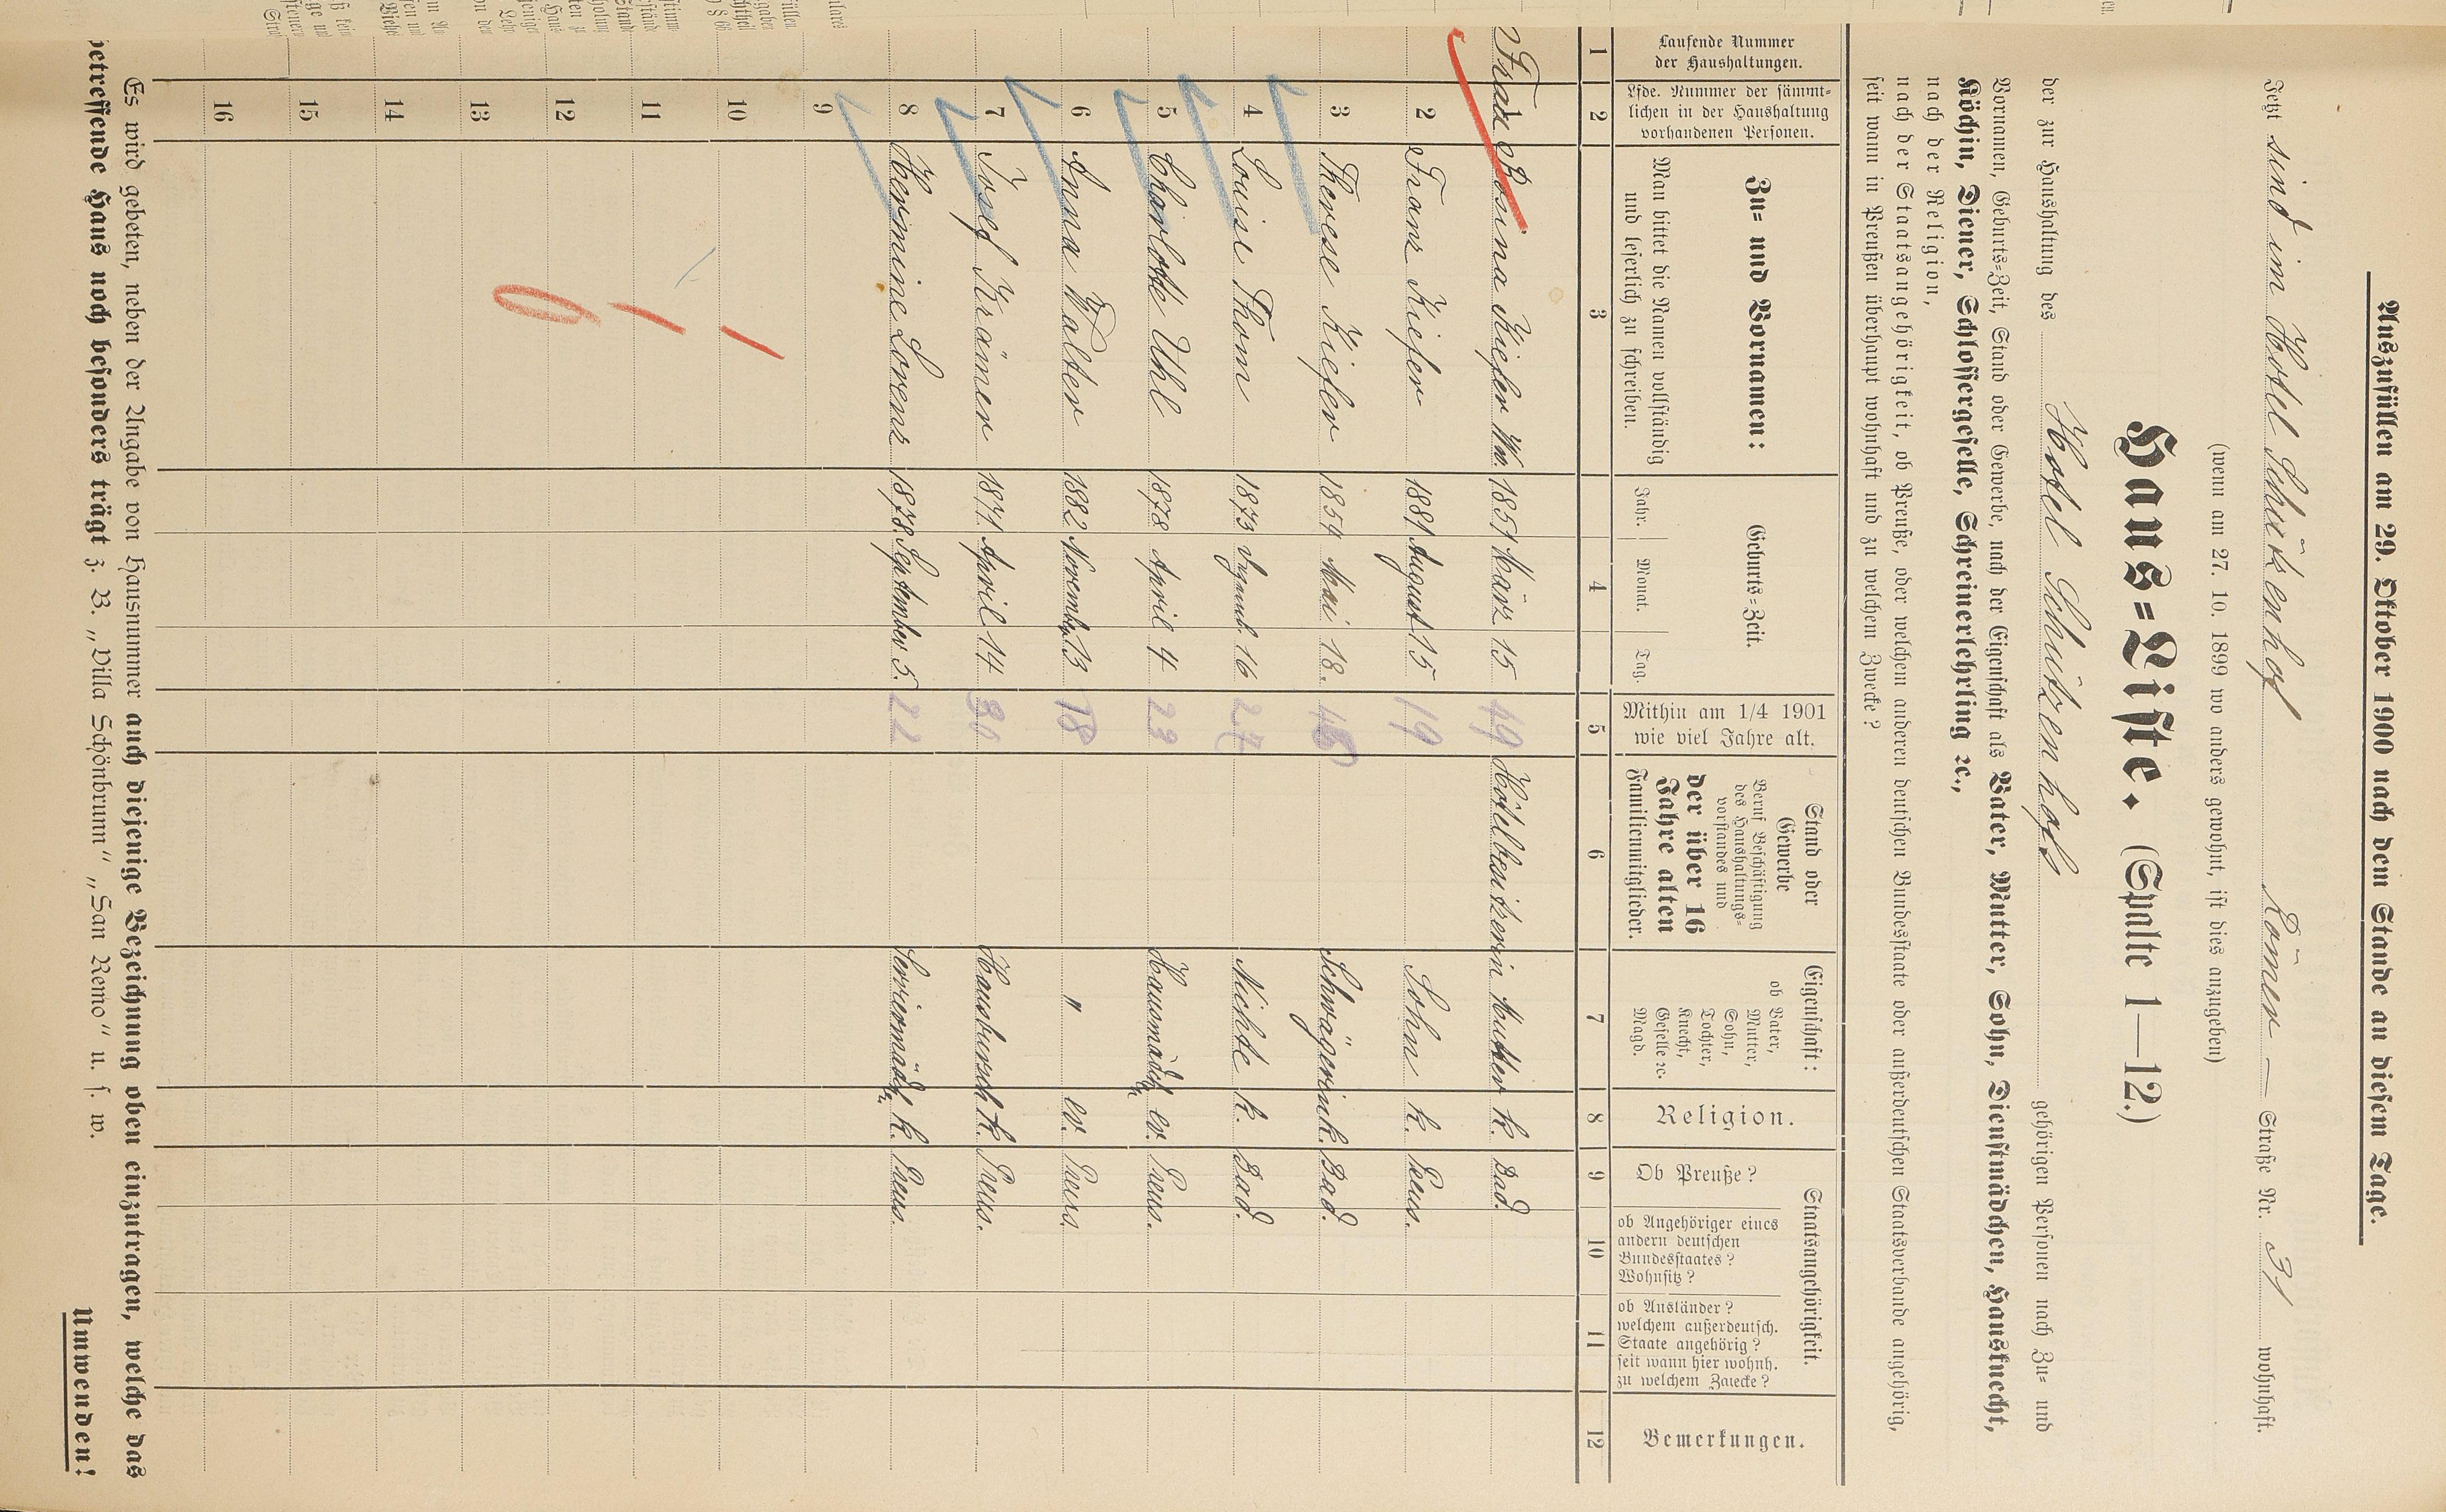 Auszufüllen am 29. Oktober 1900 nach dem Stande an diesem Tage.
Jetzt sind im Hotel Schützenhof Römer — Straße Nr. 31 wohnhaft.
(wenn am 27. 10. 1899 wo anders gewohnt, ist dies anzugeben)
Haus=Liste. (Spalte 1—12.)
der zur Haushaltung des Hotel Schützenhofs gehörigen Personen nach Zu= und
Vornamen, Geburts=Zeit, Stand oder Gewerbe, nach der Eigenschaft als Vater, Mutter, Sohn, Dienstmädchen, Hausknecht,
Köchin, Diener, Schlossergeselle, Schreinerlehrling ꝛc.,
nach der Religion,
nach der Staatsangehörigkeit, ob Preuße, oder welchem anderen deutschen Bundesstaate oder außerdeutschen Staatsverbande angehörig,
seit wann in Preußen überhaupt wohnhaft und zu welchem Zwecke?
Laufende Nummer
der Haushaltungen.
Lfde. Nummer der sämmt=
lichen in der Haushaltung
vorhandenen Personen.
Zu= und Vornamen:
Man bittet die Namen vollständig
und leserlich zu schreiben.
Geburts=Zeit.
Jahr. Monat. Tag.
Mithin am 1/4 1901
wie viel Jahre alt.
Stand oder
Gewerbe
Beruf Beschäftigung
des Haushaltungs=
vorstandes und
der über 16
Jahre alten
Familienmitglieder.
Eigenschaft:
ob Vater,
Mutter,
Sohn,
Tochter,
Knecht,
Geselle ꝛc.
Magd.
Religion.
Staatsangehörigkeit.
Ob Preuße?
ob Angehöriger eines
andern deutschen
Bundesstaates?
Wohnsitz?
ob Ausländer?
welchem außerdeutsch.
Staate angehörig?
seit wann hier wohnh.
zu welchem Zwecke?
Bemerkungen.
1 2 3 4 5 6 7 8 9 10 11 12
Frau Rosina Kiefer Ww. 1851 März 15 49 Hotelbesitzerin Mutter k. Bad.
2 Franz Kiefer 1881 August 15 19 Sohn k. Preus.
3 Therese Kiefer 1854 Mai 18. Schwägerin k. Bad.
4 Louise Thom 1873 August 16 27 Nichte k. Bad.
5 Charlotte Uhl 1878 April 4 23 Hausmädch. ev. Preus.
6 Anna Walter 1882 November 13 18 " ev. Preus.
7 Josef Krämer 1871 April 14 30 Hausbursch k. Preus.
8 Hermine Lorenz 1878 September 5. 22 Serviermädch. k. Preus.
9
10
11
12
13
14
15
16
Es wird gebeten, neben der Angabe von Hausnummer auch diejenige Bezeichnung oben einzutragen, welche das
betreffende Haus noch besonders trägt z. B. „Villa Schönbrunn“ „San Remo“ u. s. w.
Umwenden!